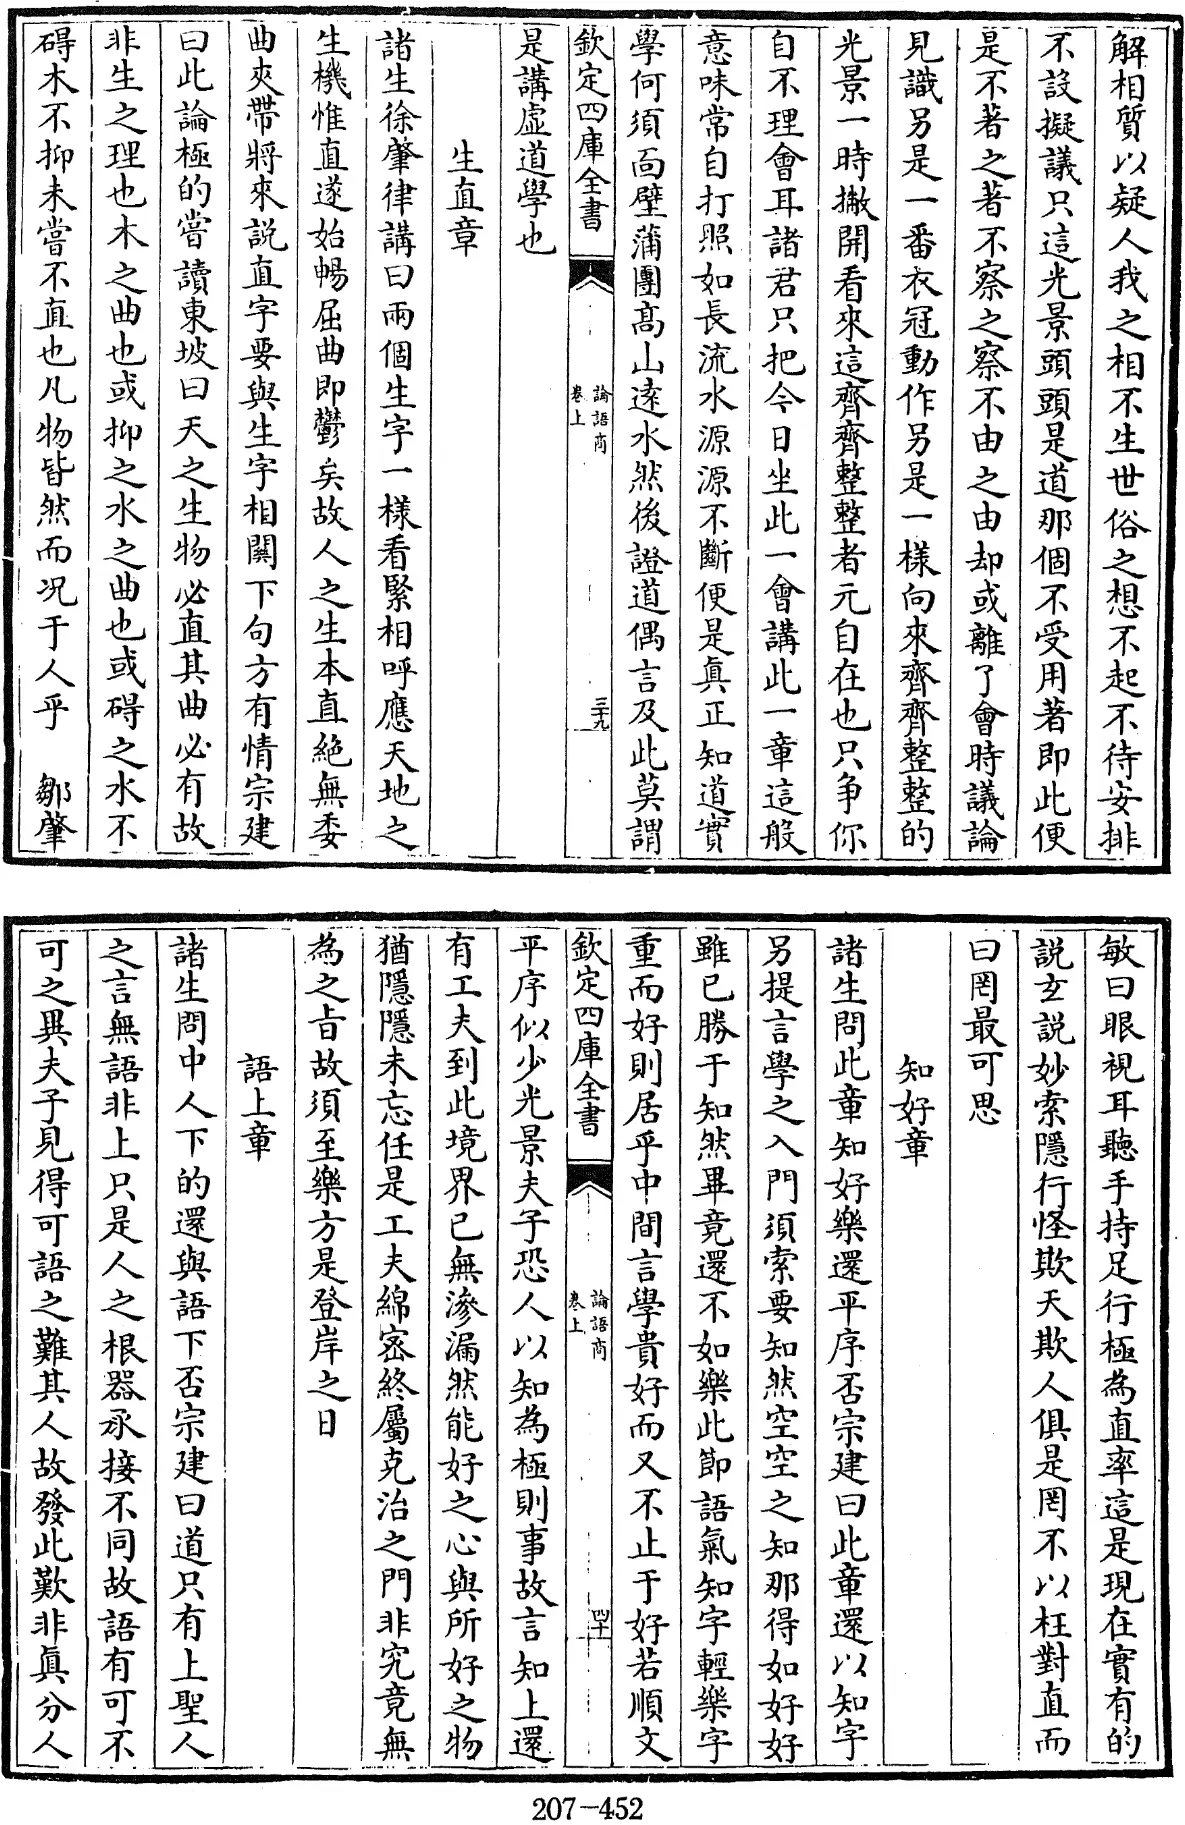 解相質以疑人我之相不生世俗之想不起不待安排
不設擬議只這光景頭頭是道那個不受用著即此便
是不著之著不察之察不由之由却或離了會時議論
見識另是一番衣冠動作另是一樣向來齊齊整整的
光景一時撇開看來這齊齊整整者元自在也只爭你
自不理會耳諸君只把今日坐此一會講此一章這般
意味常自打照如長流水源源不斷便是真正知道實
學何須面壁蒲團髙山逺水然後證道偶言及此莫謂
欽定四庫全書
論語商
卷上
三十九
是講虛道學也
生直章
諸生徐肇律講曰兩個生字一樣看緊相呼應天地之
生機惟直遂始暢屈曲即鬱矣故人之生本直絶無委
曲夾帶將來説直字要與生字相關下句方有情宗建
曰此論極的嘗讀東坡曰天之生物必直其曲必有故
非生之理也木之曲也或抑之水之曲也或碍之水不
碍木不抑未嘗不直也凡物皆然而况于人乎 鄒肇
敏曰眼視耳聽手持足行極為直率這是現在實有的
説玄説妙索隱行怪欺天欺人俱是罔不以枉對直而
曰罔最可思
知好章
諸生問此章知好樂還平序否宗建曰此章還以知字
另提言學之入門須索要知然空空之知那得如好好
雖已勝于知然畢竟還不如樂此節語氣知字輕樂字
重而好則居乎中間言學貴好而又不止于好若順文
欽定四庫全書
論語商
卷上
四十
平序似少光景夫子恐人以知為極則事故言知上還
有工夫到此境界已無滲漏然能好之心與所好之物
猶隱隱未忘任是工夫綿宻終屬克治之門非究竟無
為之旨故須至樂方是登岸之日
語上章
諸生問中人下的還與語下否宗建曰道只有上聖人
之言無語非上只是人之根器承接不同故語有可不
可之異夫子見得可語之難其人故發此歎非真分人
207-452